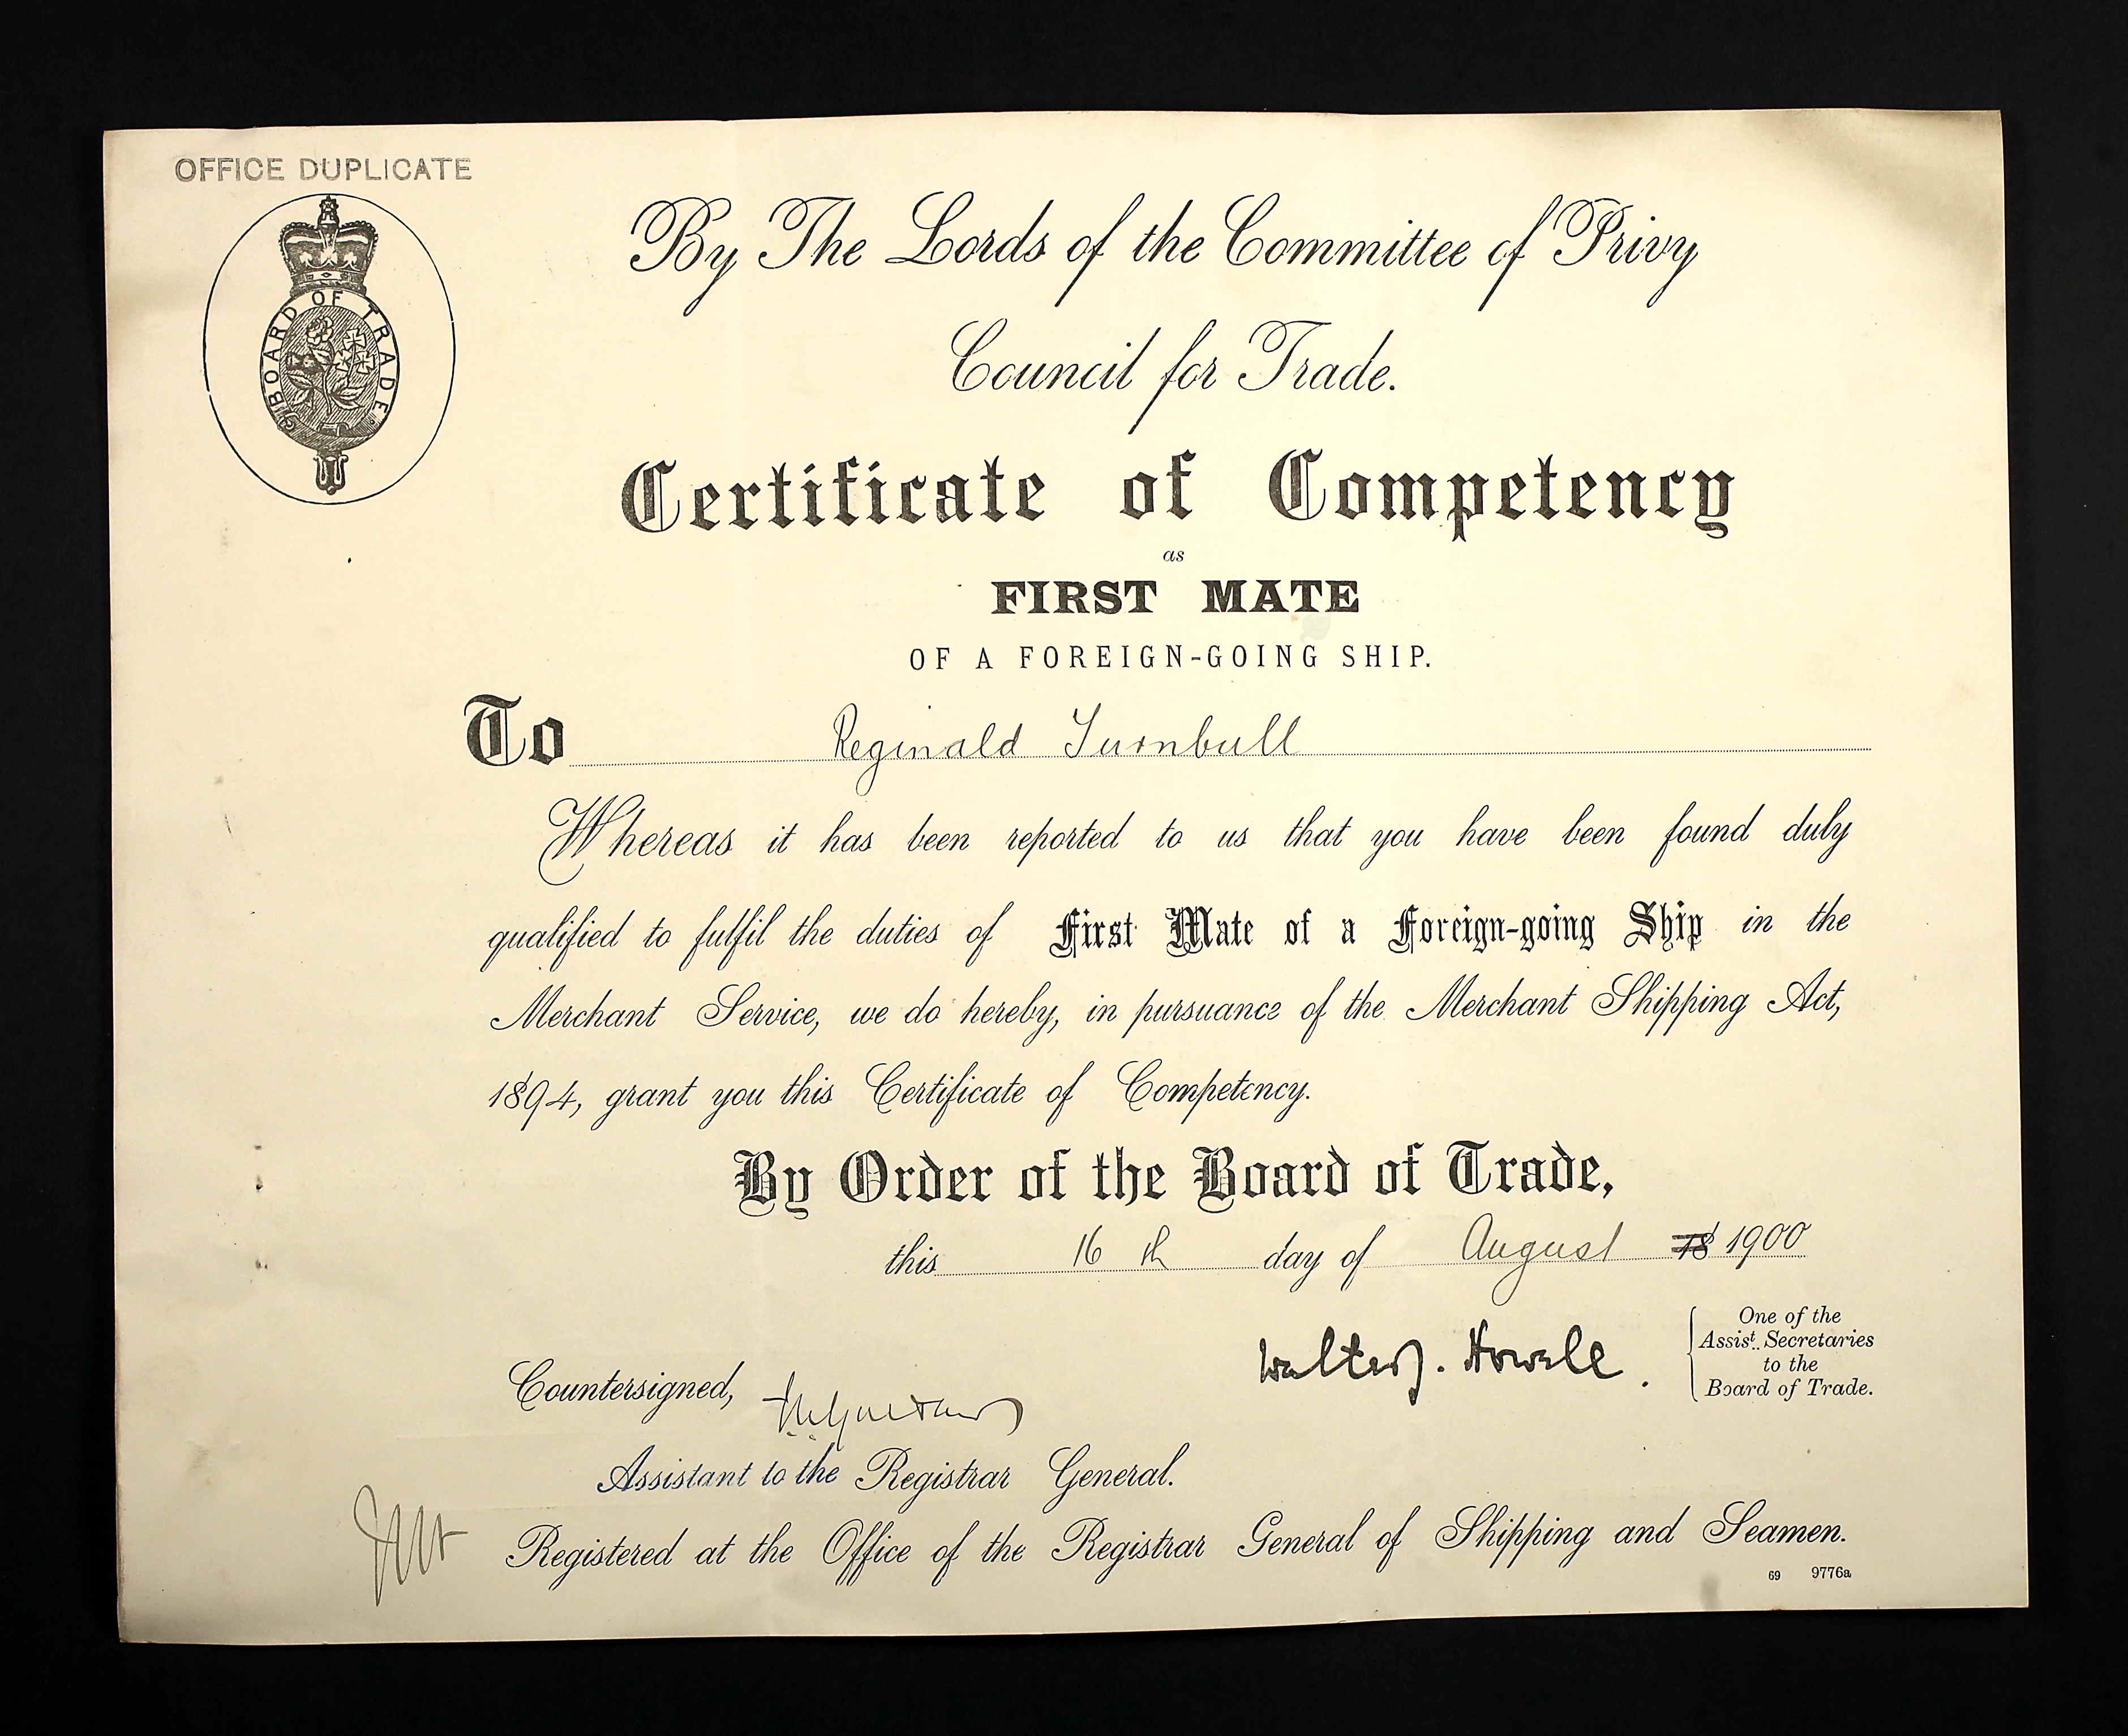 OFFICE DUPLICATE
BOARD OF TRADE
By The Lords of the Committee of Privy
Council for Trade.
Certificate of Competency
as
FIRST MATE
OF A FOREIGN-GOING SHIP.
To Reginald Turnbull
Whereas it has been reported to us that you have been found duly
qualified to fulfil the duties of First Mate of a Foreign-going Ship in the
Merchant Service, we do hereby, in pursuance of the Merchant Shipping Act,
1894, grant you this Certificate of Competency.
By Order of the Board of Trade,
this 16th day of August 18 1900
Walter J. Howell.
One of the
Assist. Secretaries
to the
Board of Trade.
Countersigned,
Assistant to the Registrar General.
Registered at the Office of the Registrar General of Shipping and Seamen.
69 9776a